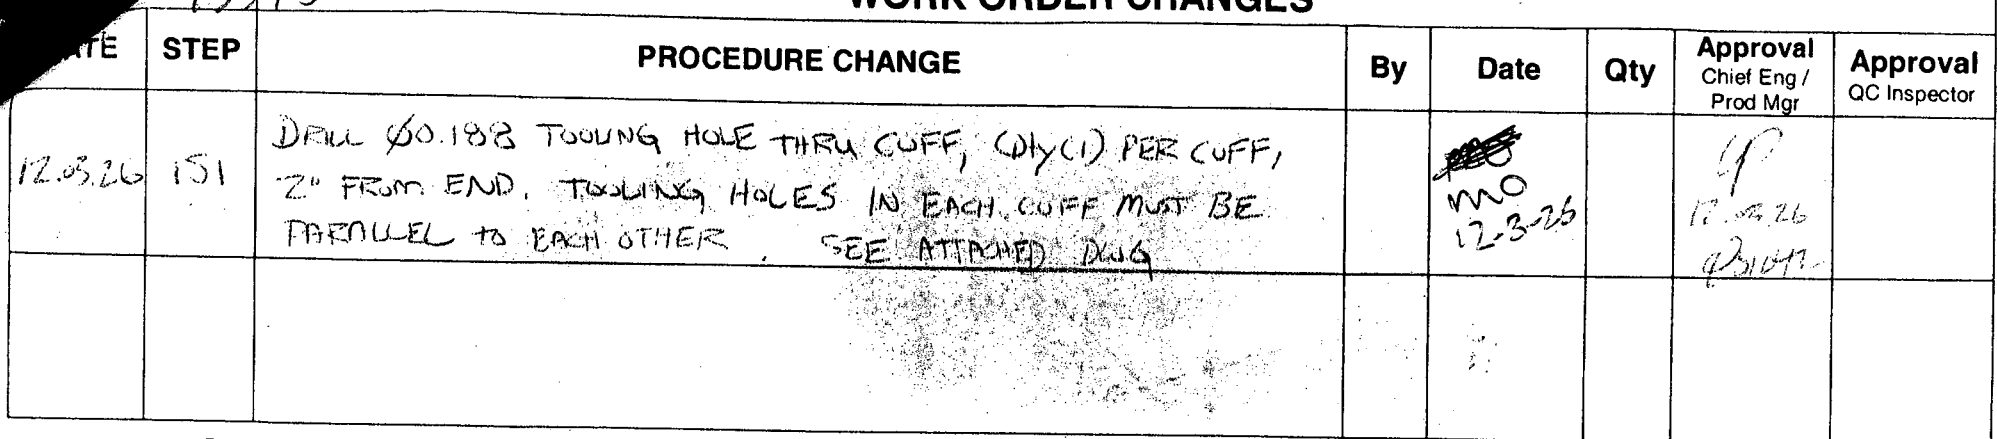 WORK ORDER CHANGES
STEP
PROCEDURE CHANGE
By
Date
Qty
Approval
Chief Eng /
Prod Mgr
Approval
QC Inspector
12.03.26
151
DRILL Ø0.188 TOOLING HOLE THRU CUFF, QTY(1) PER CUFF,
2" FROM END. TOOLING HOLES IN EACH CUFF MUST BE
PARALLEL TO EACH OTHER. SEE ATTACHED DWG
MO
12-3-26
12.03.26